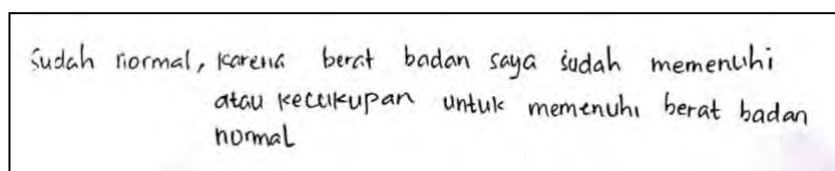 sudah normal, karena berat badan saya sudah memenuhi
atau kecukupan untuk memenuhi berat badan
normal